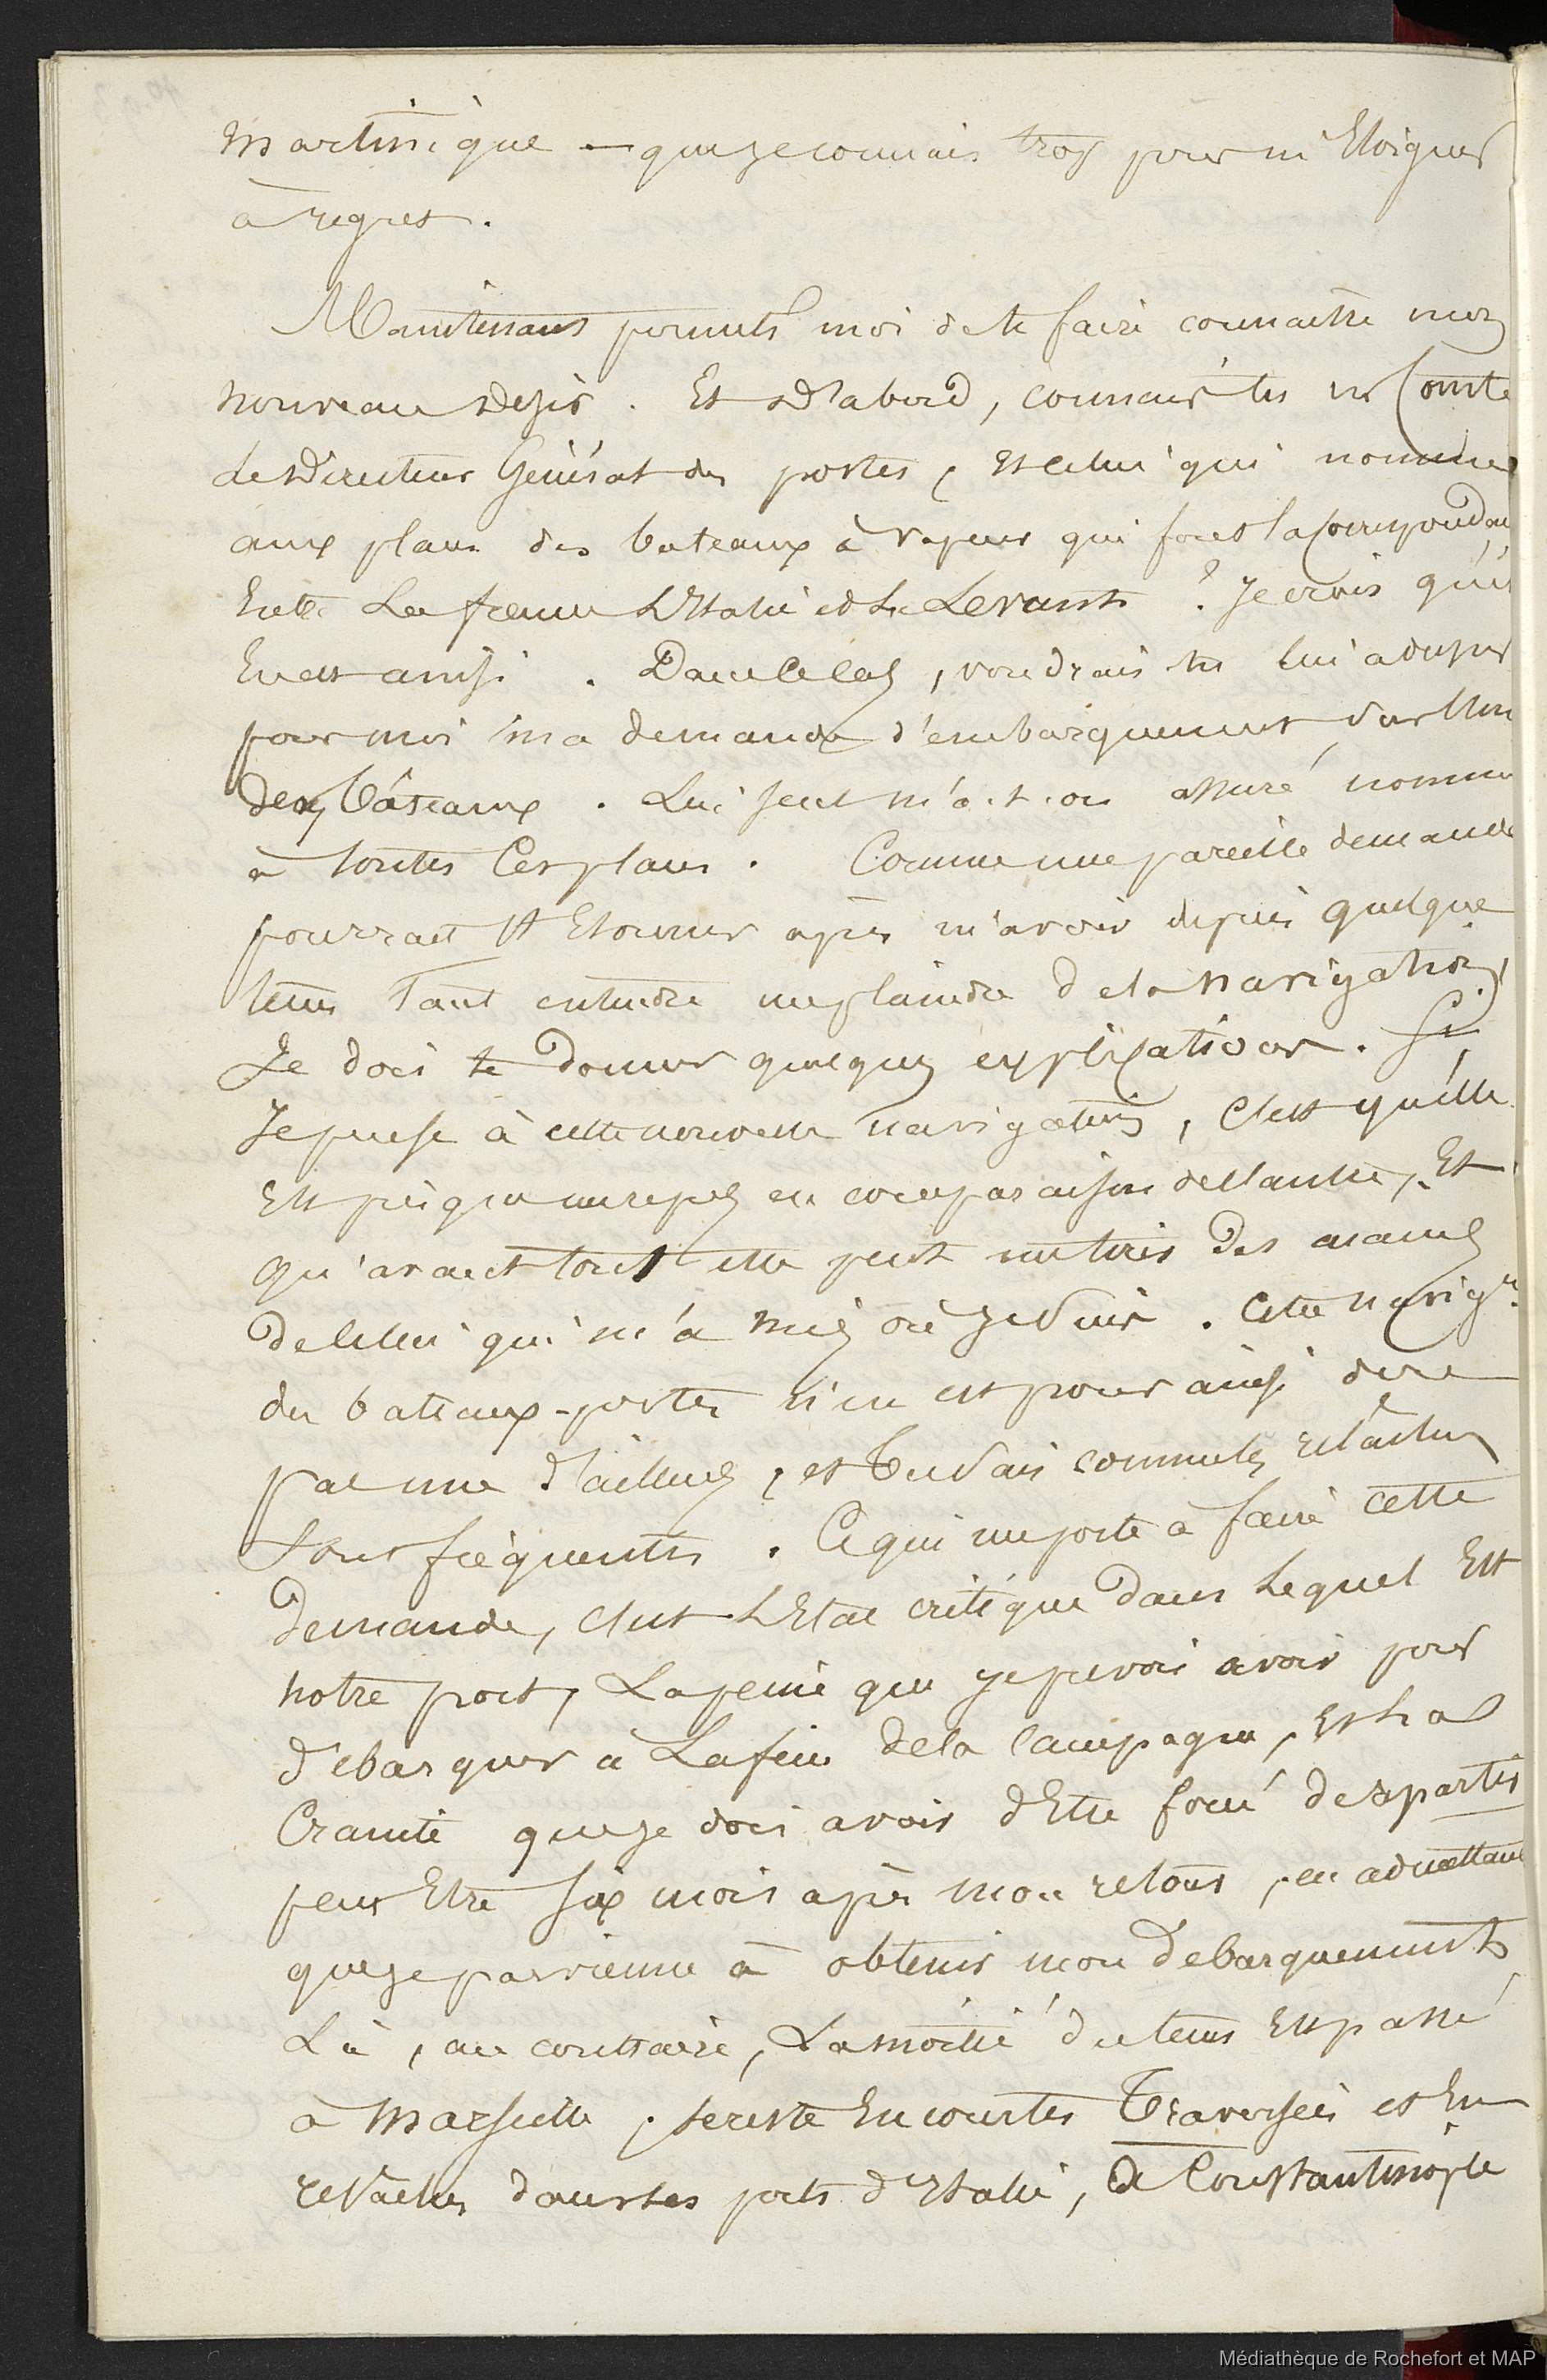 Martinique — que je connais trop pour m'Eloigner
à regret.
Maintenant permets moi de te faire connaître mon
nouveau desir. Et d'abord, connais tu Mr Comte
le Directeur Général des postes, est celui qui nomme
aux places des bateaux à vapeur qui font la Correspondan
Entre La france L'Italie et Le Levant ? Je crois qu'il
En est ainsi. Dans ce cas, voudrais tu lui adresser
pour moi ma demande d'embarquement sur l'un
de ces bâteaux. Lui seul m'a-t-on assuré nomme
à toutes Ces places. Comme une pareille demande
pourrait t'Etonner après m'avoir depuis quelque
tems tant entendre me plaindre de la navigation,
Je dois te donner quelques explications. Si
Je pense à cette nouvelle navigation, c'est qu'elle
Est presque un repos en comparaison de l'autre, Et
qu'avant tout elle peut me tirer des mains
de celui qui m'a mis où je suis. Cette navigon
des bateaux-postes n'en est pour ainsi dire
pas une d'ailleurs, et tu sais comme les relâches
Sont fréquentes. Ce qui me porte à faire cette
demande, c'est L'Etat critique dans Lequel Est
notre port, La peine que je prevois avoir pour
débarquer à La fin de la Campagne, et La
Crainte que je dois avoir d'Etre forcé de repartir
peut Etre six mois après mon retour, en admettant
que je parvienne à obtenir mon debarquement
Là, au contraire, La moitié du tems Est passé
à Marseille, le reste En courtes Traversées et En
relâches dans les ports d'Italie, de Constantinople
Médiathèque de Rochefort et MAP